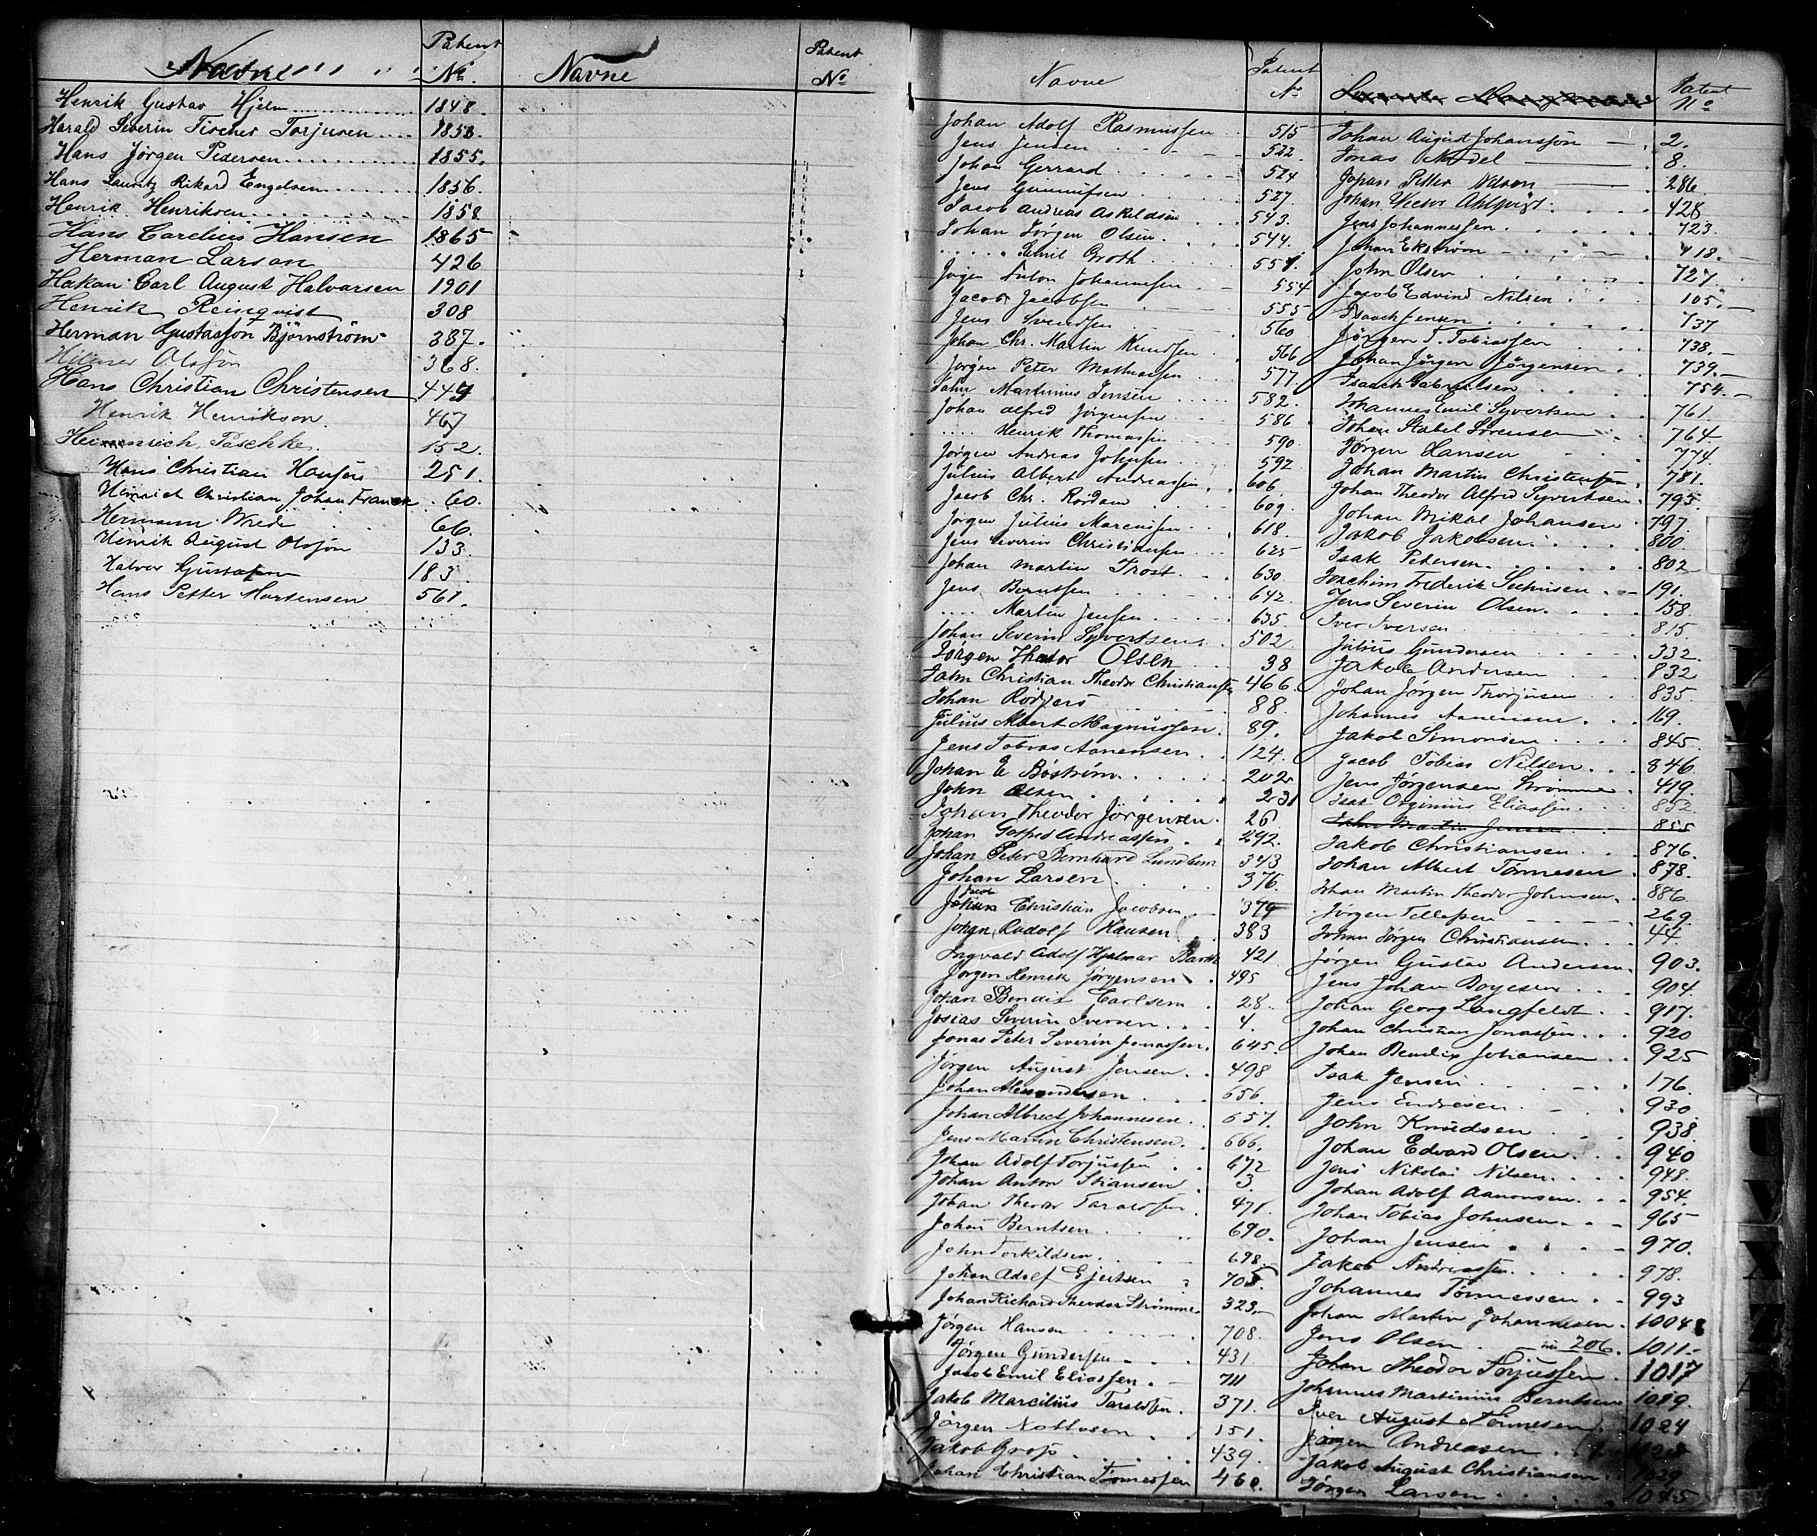 Navne Patent No.
Henrik Gustav Hjelm 1848.
Harald Severin Fischer Torjusen 1853.
Hans Jørgen Pedersen 1855.
Hans Lauritz Rikard Engelsen 1856.
Henrik Henriksen 1858
Hans Carelius Hansen 1865
Herman Larson 426
Hakan Carl August Halvarsen 1901
Henrik Reinqvist 308
Herman Gustafson Bjørnstrøm 387.
Hilmer Olsson 368.
Hans Christian Christensen 449
Henrik Henrikson. 467
Heinrich Paschke. 152.
Hans Christian Hansen 251.
Heinrich Christian Johan Franck 60.
Hermann Wrede 66.
Henrik August Olsson 133.
Halvor Gustafsen 183.
Hans Petter Mortensen 561.
Navne Patent No
Navne Patent No
Johan Adolf Rasmussen 515
Jens Jensen 522
Johan Gerrard 524
Jens Gunnufsen 527.
Jacob Andreas Askildsen 543.
Johan Jørgen Olsen 544.
Emil Groth 551.
Jørgen Anton Johannesen 554
Jacob Jacobsen 555
Jens Svendsen 560
Johan Chr. Martin Knudsen 566
Jørgen Peter Mathiassen 577.
John Martinius Jensen 582.
Johan Alfred Jørgensen 586
Henrik Thomassen 590
Jørgen Andreas Johnsen 592
Julius Albert Andreassen 606
Jacob Chr. Rørdam 609
Jørgen Julius Marcussen 618
Jens Severin Christiansen 625
Johan Martin Frost 630
Jens Berntsen 642
Martin Jensen 635
Johan Severin Syvertsen 502
Jørgen Theodor Olsen 38
John Christian Theodor Christiansen 466.
Johan Rodgers 88.
Julius Albert Magnussen 89.
Jens Tobias Aanensen 124.
Johan E Bostrøm 202
John Olsen 231
Johan Theodor Jörgensen 26
Johan Gotfred Andreassen 292.
Johan Peter Bernhard Lundberg 343
Johan Larsen 376.
Jacob
Johan Christian Jacobsen 379
Johan Rudolf Hansen 383
Ingvald Adolf Hjalmar Barth 421
Jørgen Henrik Jørgensen 495
Johan Bendix Carlsen 28.
Josias Severin Iversen 4.
Jonas Peter Severin Jonassen 645.
Jørgen August Jensen 498
Johan Alexandersen 656.
Johan Albrect Johannesen 657.
Jens Martin Christensen 666.
Johan Adolf Torjussen 672
Johan Anton Stiansen 3.
Johan Theodor Taraldsen 471.
Johan Berntsen 690.
John Torkildsen 698.
Johan Adolf Ejertsen 705
Johan Richard Theodor Strømme 323.
Jørgen Hansen 708.
Jørgen Gundersen 431
Jacob Emil Eliassen 711
Jakob Marcilius Taraldsen 371.
Jørgen Nottosen 151.
Jakob Groos 439.
Johan Christian Tønnessen 460.
Patent No
Johan August Johansson 2.
Jonas Nodel 8.
Johan Petter Nilson 286
Johan Victor Ahlqvist 428
Jens Johannessen 723.
Johan Ekstrøm 418.
John Olsen 727.
Jacob Edvind Nilsen 105.
Isaach Jensen 737
Jørgen T. Tobiassen 738.
Johan Jörgen Jörgensen 739.
Isaach Gabrielsen 754.
Johannes Emil Syvertsen 761.
Johan Stabel Sørensen 764
Jørgen Hansen 774.
Johan Martin Christensen 781.
Johan Theodor Alfred Syvertsen 795.
Johan Mikal Johansen 797.
Jakob Jakobsen 800.
Isak Petersen 802
Joachim Frederik Sechusen 191.
Jens Severin Olsen 158.
Iver Iversen 815.
Julius Gundersen 332.
Jakob Andersen 832
Johan Jørgen Thorjusen 835
Johannes Aanensen 169.
Jakob Simonsen 845.
Jacob Tobias Nilsen 846
Jens Jørgensen Strømme 419.
Isak Orginius Eliassen 852
John Martin Jensen 855
Jakob Christiansen 876.
Johan Albert Tönnesen 878.
Johan Martin Theodor Johnsen 886.
Jørgen Tellefsen 269.
Johan Jørgen Christiansen 44
Jørgen Gustav Andersen 903.
Jens Johan Boyesen 904.
Johan Georg Langfeldt 917.
Johan Christian Jonassen 920
Johan Bendix Johansen 925
Isak Jensen 176.
Jens Endresen 930.
John Knudsen 938.
Johan Edvard Olsen 940
Jens Nikolai Nilsen 948.
Johan Adolf Aanonsen 954.
Johan Tobias Johnsen 965
Johan Jensen 970.
Jakob Andreassen 978.
Johannes Tönnessen 993
Johan Martin Johannesen 1004
Jens Olsen nu 206. 1011.
Johan Theodor Torjussen 1017
Johannes Martinius Berntsen 1019.
Iver August Tønnesen 1024
Jørgen Andreasen
Jakob August Christiansen 1029
Jørgen Larsen 1045
U
V
X
Z